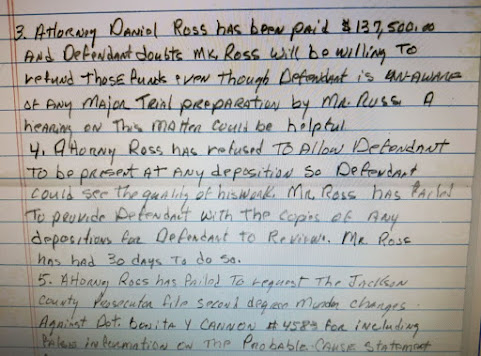 3. Attorney Daniel Ross has been paid $137,500.00
And Defendant doubts Mr. Ross will be willing To
refund Those funds even though Defendant is unaware
of Any Major Trial preparation by Mr. Ross. A
hearing on This matter could be helpful
4. Attorny Ross has refused To Allow Defendant
To be present at Any deposition so Defendant
could see The quality of his work. Mr. Ross has failed
To provide Defendant with The copies of Any
depositions for Defendant to Review. Mr. Ross
has had 30 days To do so.
5. Attorney Ross has failed To request The Jackson
County Prosecutor file second degree Murder charges
Against Det. Bonita Y Cannon #4583 for including
false information on The Probable Cause Statement